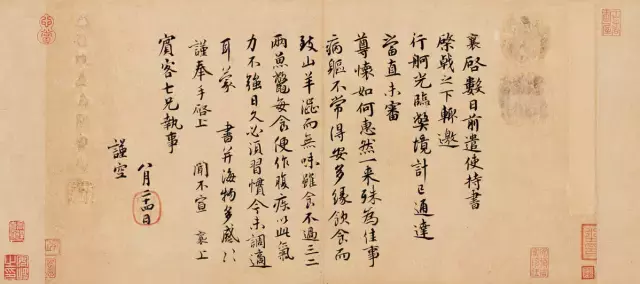 襄啓數日前遣使持書
棨戟之下輒邀
行舸光臨獘境計已通達
當直未審
尊懷如何惠然一來殊為佳事
病軀不常得安多緣飲食而
致山羊澀而無味雖食不過三二
兩魚鱉每食便作腹疾以此氣
力不強日久必須習慣今未調適
耳蒙 書并海物多感〻
謹奉手啓上 聞不宣 襄上
賓客七兄執事
八月二十四日
謹空